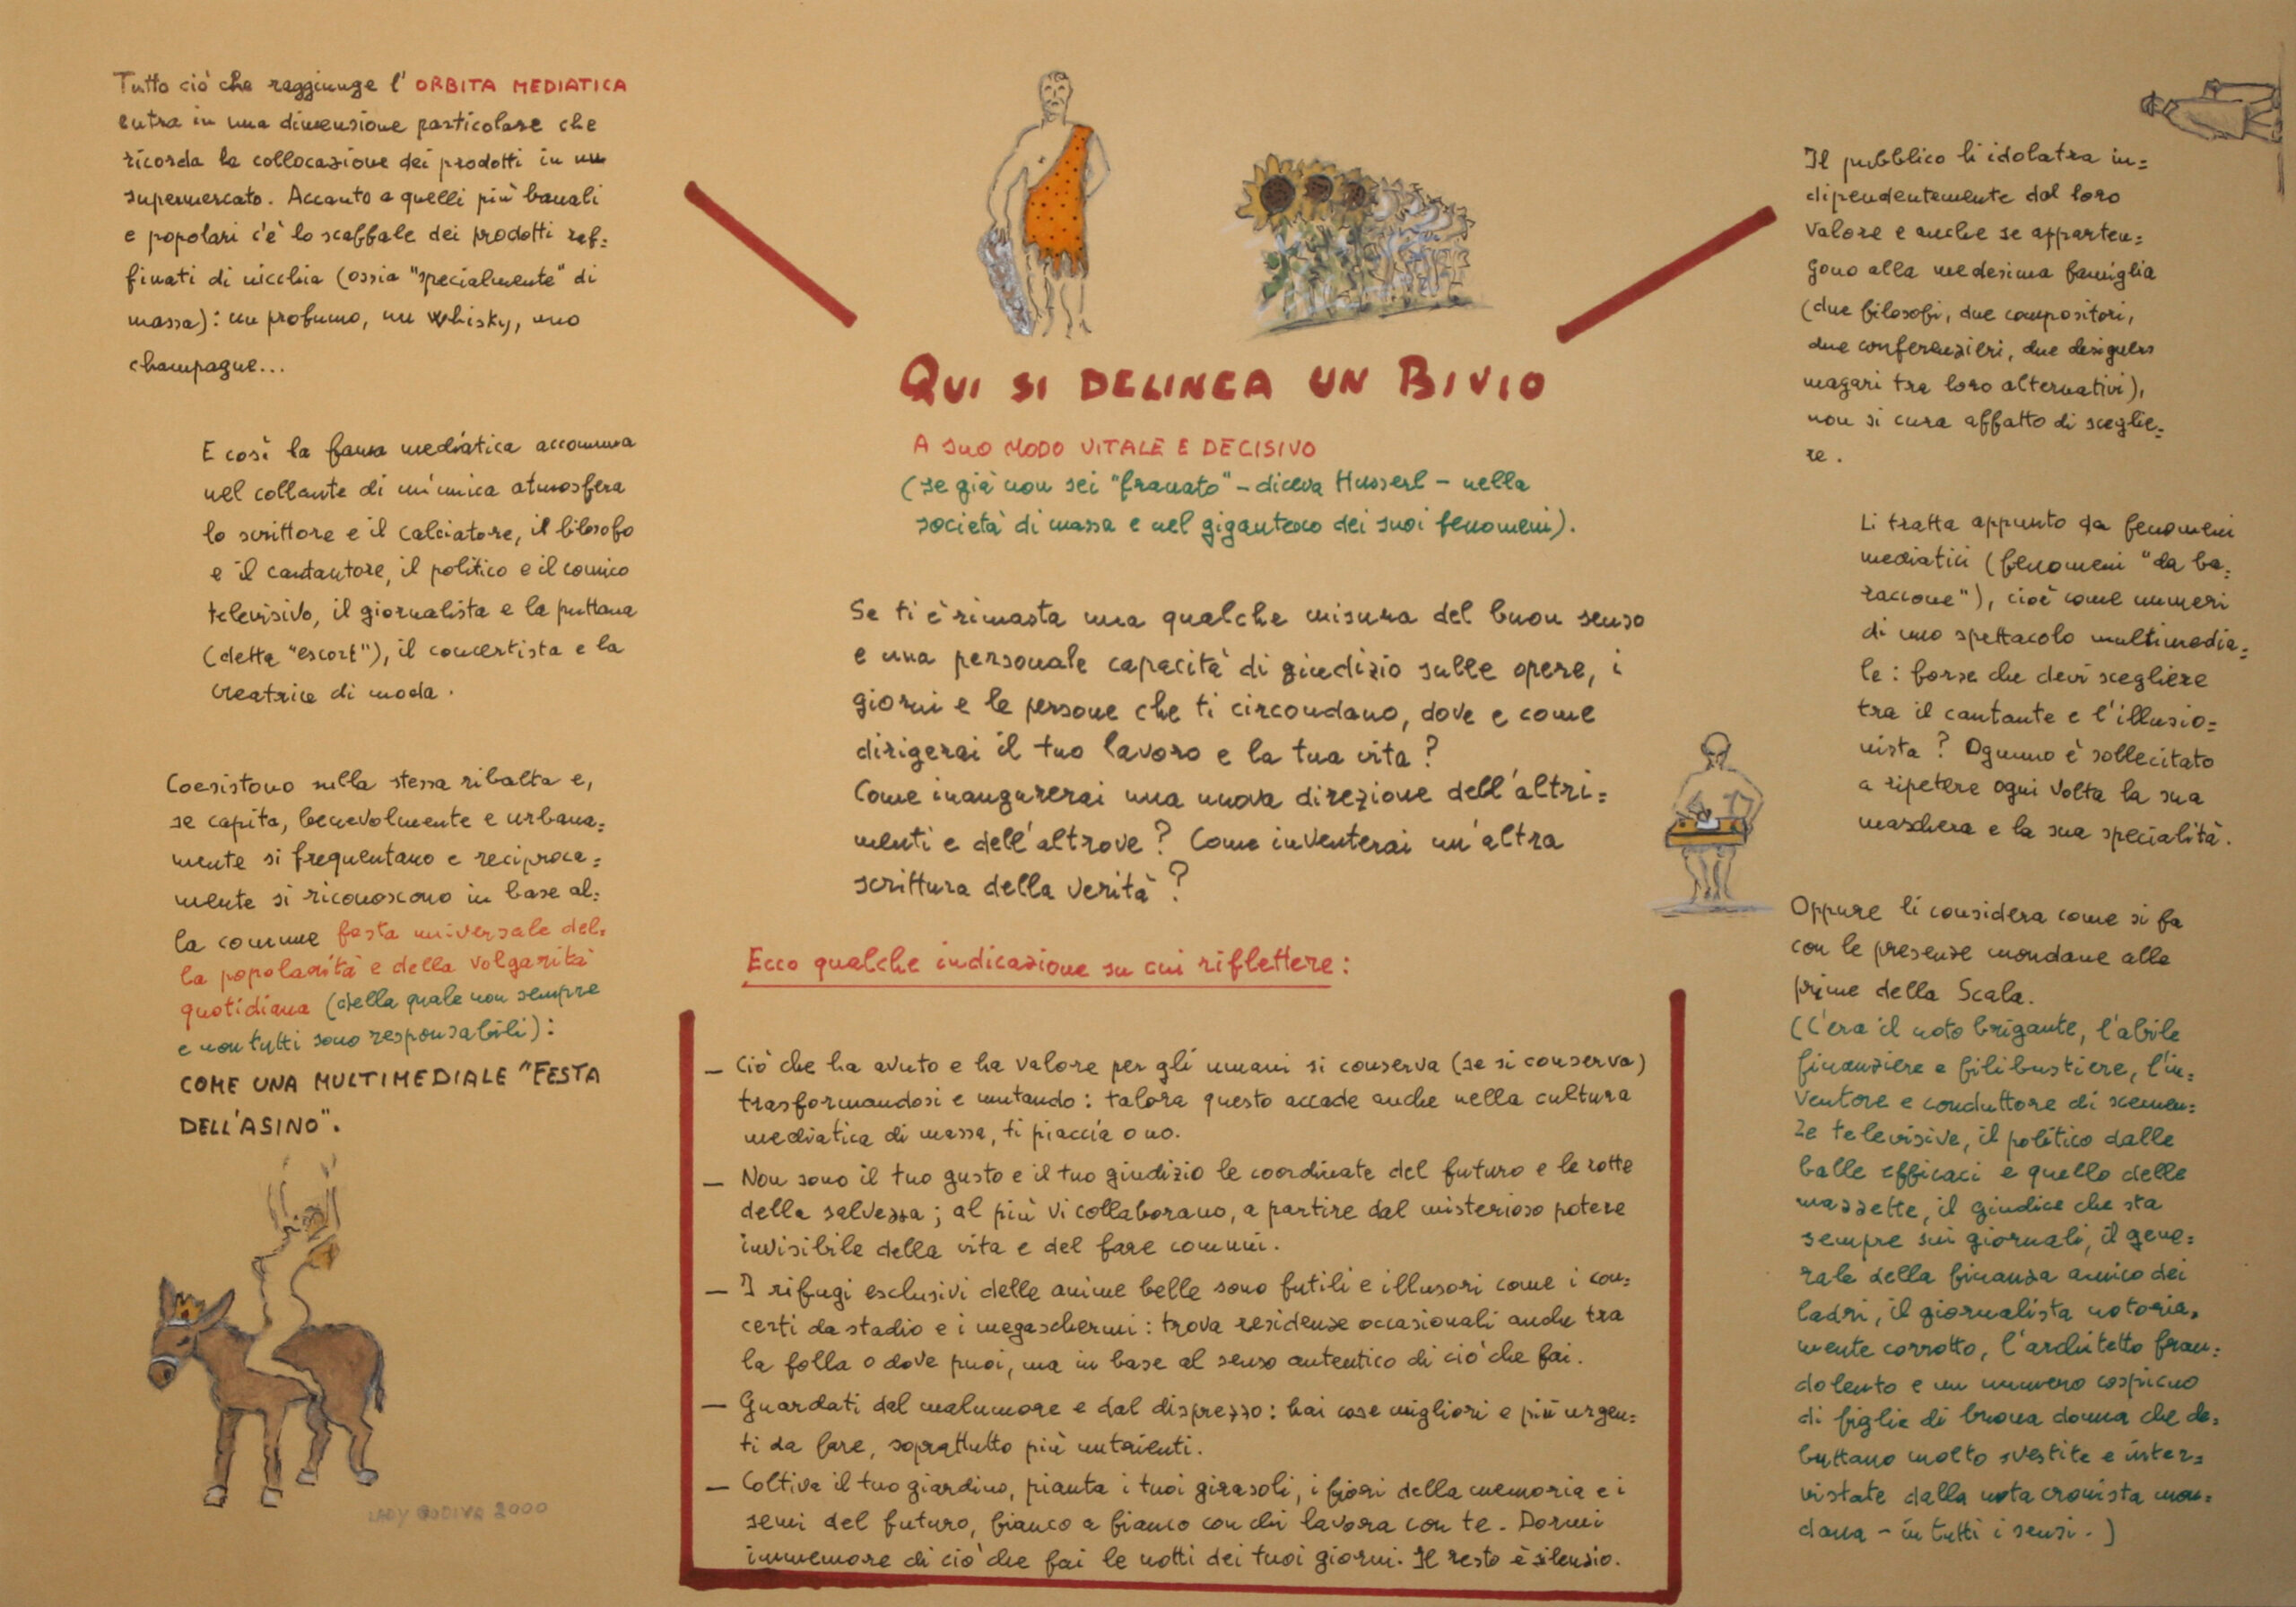 Tutto ciò che raggiunge l'ORBITA MEDIATICA
entra in una dimensione particolare che
ricorda la collocazione dei prodotti in un
supermercato. Accanto a quelli più banali
e popolari c'è lo scaffale dei prodotti raf=
finati di nicchia (ossia "specialmente" di
massa): un profumo, un whisky, uno
champagne...
E così la fama mediatica accomuna
nel collante di un'unica atmosfera
lo scrittore e il calciatore, il filosofo
e il cantautore, il politico e il comico
televisivo, il giornalista e la puttana
(detta "escort"), il concertista e la
creatrice di moda.
Coesistono sulla stessa ribalta e,
se capita, benevolmente e urbana=
mente si frequentano e reciproca=
mente si riconoscono in base al=
la comune festa universale del=
la popolarità e della volgarità
quotidiana (della quale non sempre
e non tutti sono responsabili):
COME UNA MULTIMEDIALE "FESTA
DELL'ASINO".
LADY GODIVA 2000
QUI SI DELINEA UN BIVIO
A SUO MODO VITALE E DECISIVO
(se già non sei "franato" - diceva Husserl - nella
società di massa e nel gigantesco dei suoi fenomeni).
Se ti è rimasta una qualche misura del buon senso
e una personale capacità di giudizio sulle opere, i
giorni e le persone che ti circondano, dove e come
dirigerai il tuo lavoro e la tua vita?
Come inaugurerai una nuova direzione dell'altri=
menti e dell'altrove? Come inventerai un'altra
scrittura della verità?
Ecco qualche indicazione su cui riflettere:
- Ciò che ha avuto e ha valore per gli umani si conserva (se si conserva)
trasformandosi e mutando: talora questo accade anche nella cultura
mediatica di massa, ti piaccia o no.
- Non sono il tuo gusto e il tuo giudizio le coordinate del futuro e le rotte
della salvezza; al più vi collaborano, a partire dal misterioso potere
invisibile della vita e del fare comuni.
- I rifugi esclusivi delle anime belle sono futili e illusori come i con=
certi da stadio e i megaschermi: trova residenze occasionali anche tra
la folla o dove puoi, ma in base al senso autentico di ciò che fai.
- Guardati dal malumore e dal disprezzo: hai cose migliori e più urgen=
ti da fare, soprattutto più nutrienti.
- Coltiva il tuo giardino, pianta i tuoi girasoli, i fiori della memoria e i
semi del futuro, fianco a fianco con chi lavora con te. Dormi
immemore di ciò che fai le notti dei tuoi giorni. Il resto è silenzio.
Il pubblico li idolatra in=
dipendentemente dal loro
valore e anche se apparten=
gono alla medesima famiglia
(due filosofi, due compositori,
due conferenzieri, due designers
magari tra loro alternativi),
non si cura affatto di sceglie=
re.
Li tratta appunto da fenomeni
mediatici (fenomeni "da ba=
raccone"), cioè come numeri
di uno spettacolo multimedia=
le: forse che devi scegliere
tra il cantante e l'illusio=
nista? Ognuno è sollecitato
a ripetere ogni volta la sua
maschera e la sua specialità.
Oppure li considera come si fa
con le presenze mondane alle
prime della Scala.
(C'era il noto brigante, l'abile
finanziere e filibustiere, l'in=
ventore e conduttore di scemen=
ze televisive, il politico dalle
balle efficaci e quello delle
mazzette, il giudice che sta
sempre sui giornali, il gene=
rale della finanza amico dei
ladri, il giornalista notoria=
mente corrotto, l'architetto frau=
dolento e un numero cospicuo
di figlie di buona donna che de=
buttano molto svestite e inter=
vistate dalla nota cronista mon=
dana - in tutti i sensi.)